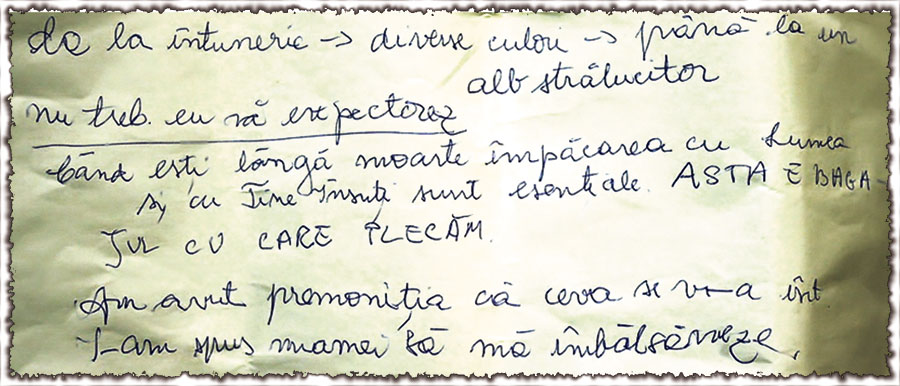 de la întuneric → diverse culori → până la un
alb strălucitor
nu treb. eu să expectorez
Când ești lângă moarte împăcarea cu Lumea
și cu Tine Însuți sunt esențiale. ASTA E BAGA-
JUL CU CARE PLECĂM.
Am avut premoniția că ceva se v-a înt.
I-am spus mamei să mă îmbălsămeze.